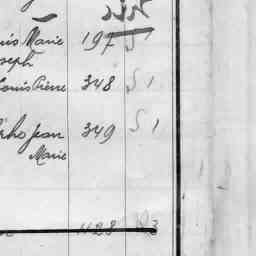 uis Marie 197 S 1
seph
Louis Pierre 348 S 1
Jean 349 S 1
Marie
1128